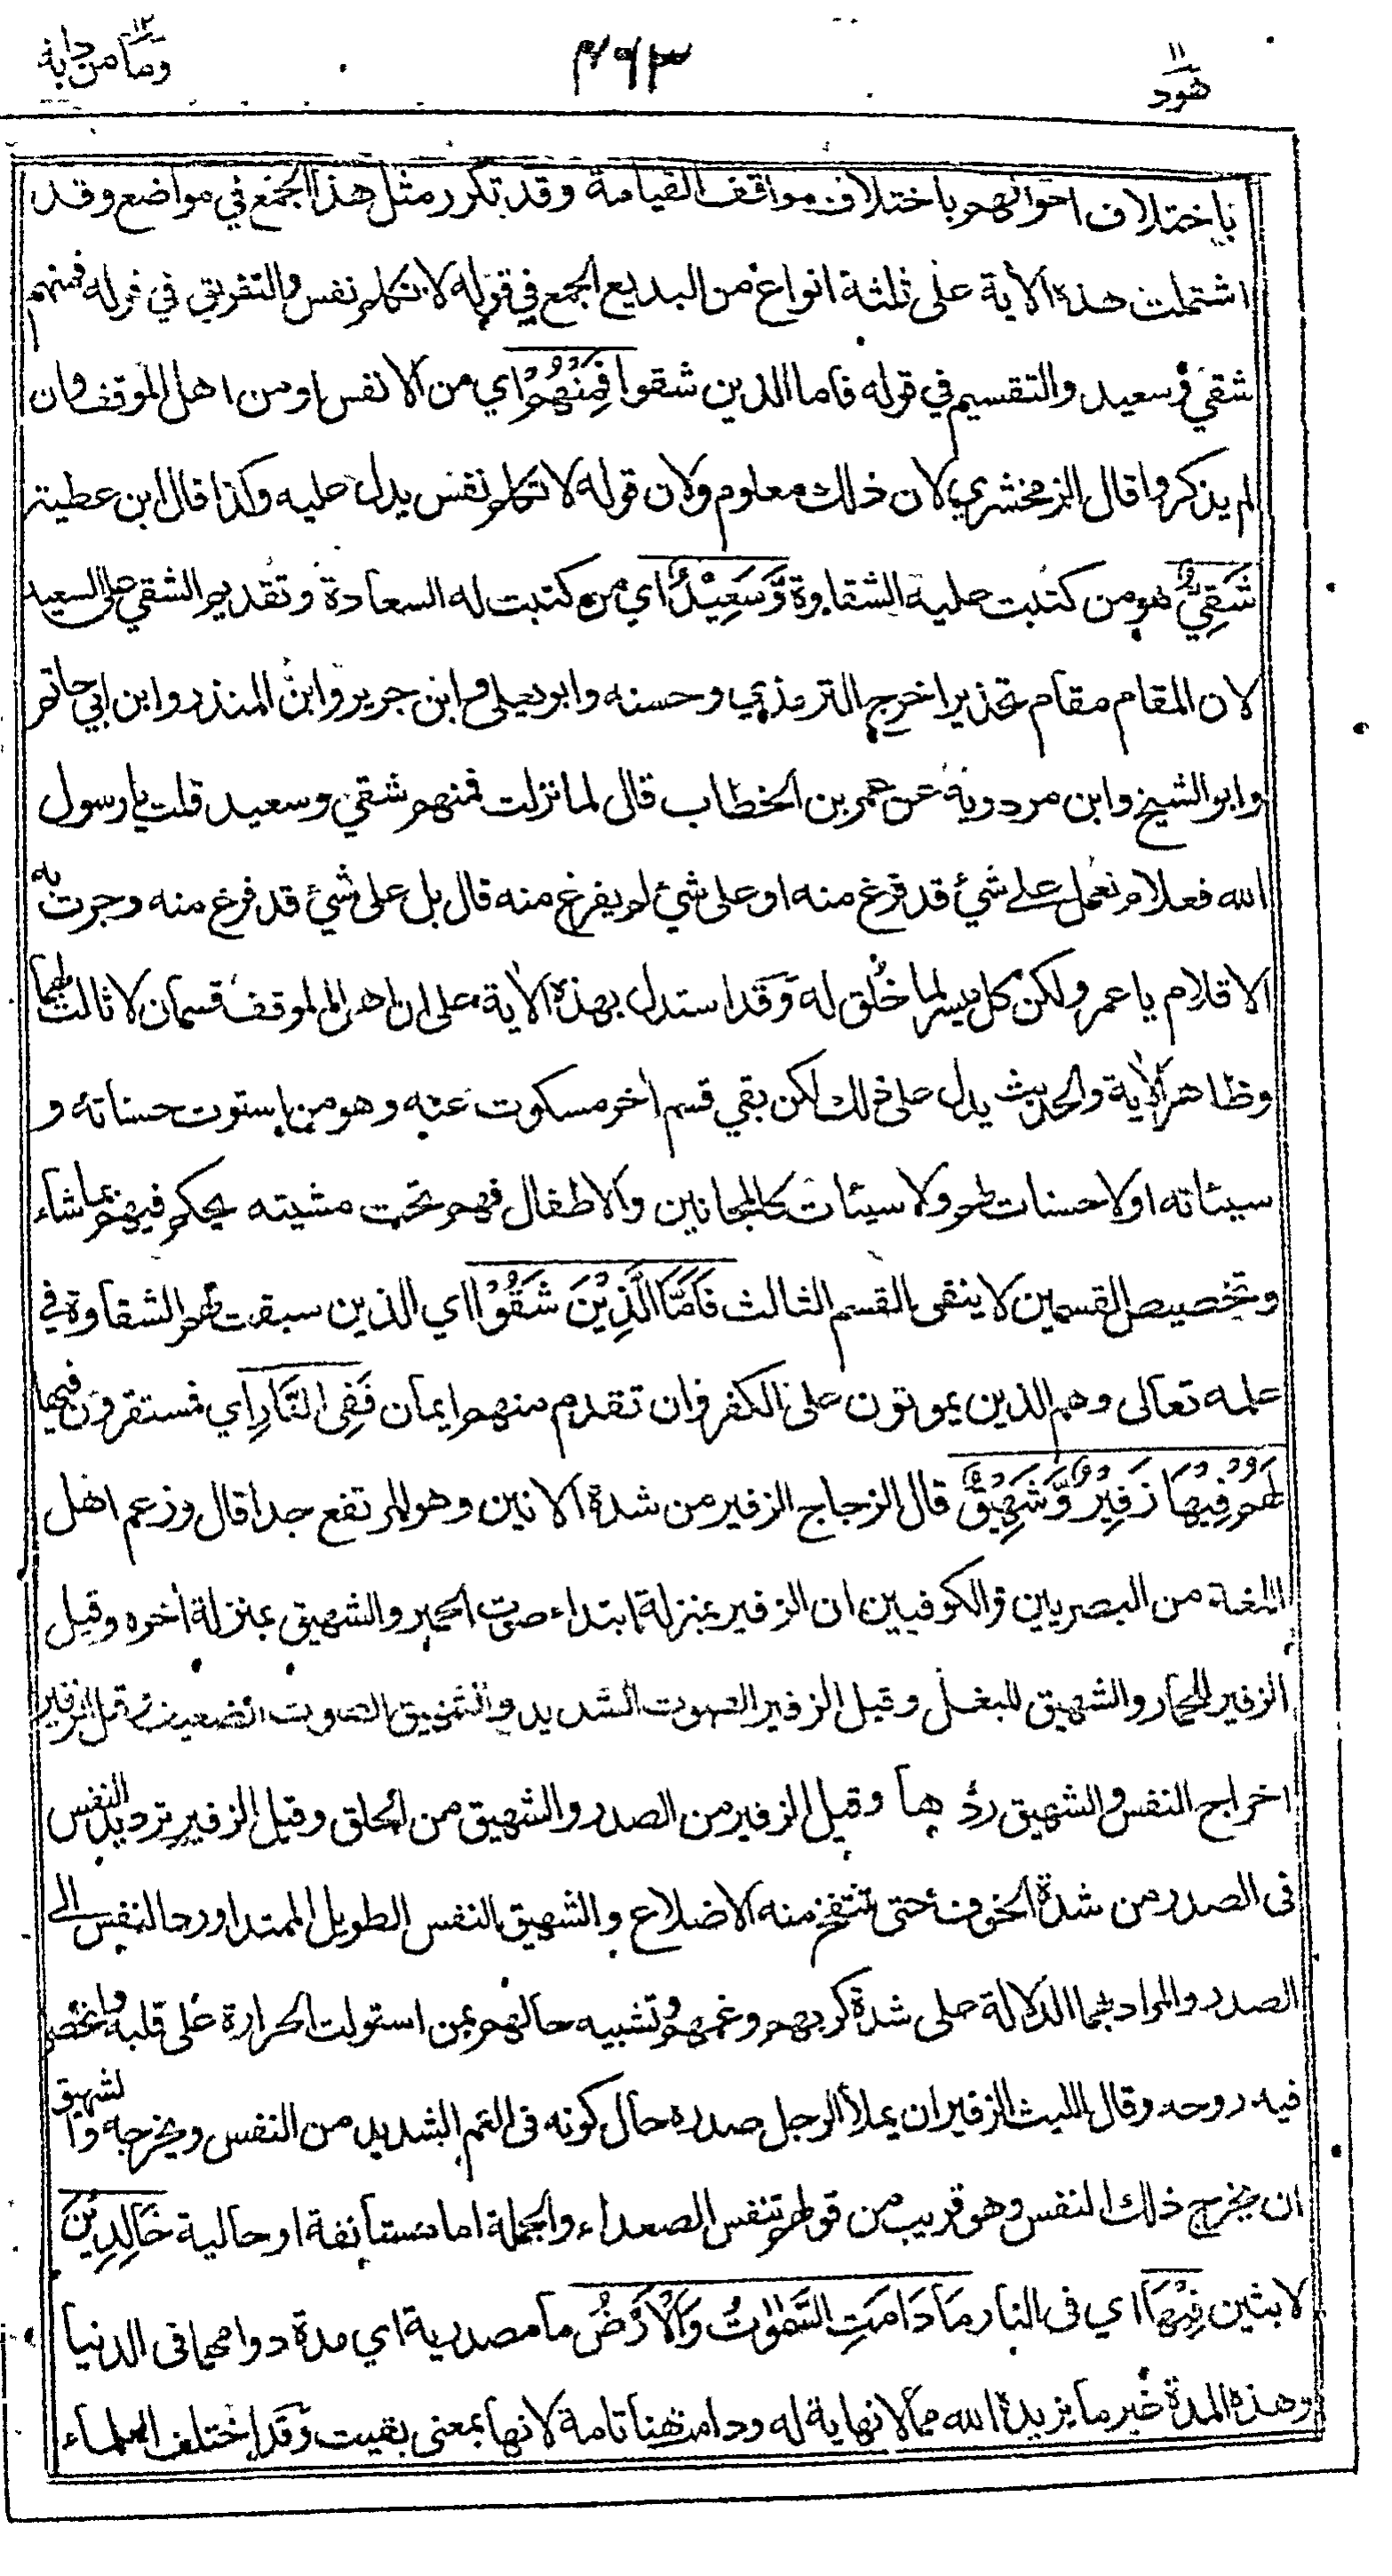 هود ١١
٤٦٣
وما من دابة ١٢
باختلاف احوالهم باختلاف مواقف القيامة وقد تكرر مثل هذا الجمع في مواضع وقد
اشتملت هذه الاية على ثلثة انواع من البديع الجمع في قوله لا تكلم نفس والتفريق في قوله فمنهم
شقي وسعيد والتقسيم في قوله فاما الذين شقوا فَمِنْهُمْ اي من الانفس او من اهل الموقف وان
لم يذكروا قال الزمخشري لان ذلك معلوم ولان قوله لا تكلم نفس يدل عليه وكذا قال ابن عطية
شَقِيٌّ هو من كتبت عليه الشقاوة وَّسَعِيْدٌ اي من كتبت له السعادة وتقديم الشقي على السعيد
لان المقام مقام تحذير اخرج الترمذي وحسنه وابو يعلى وابن جرير وابن المنذر وابن ابي حاتم
وابو الشيخ وابن مردوية عن عمر بن الخطاب قال لما نزلت فمنهم شقي وسعيد قلت يا رسول
الله فعلام نعمل على شيء قد فرغ منه او على شيء لم يفرغ منه قال بل على شيء قد فرغ منه وجرت به
الاقلام يا عمر ولكن كل ميسر لما خُلق له وقد استدل بهذه الاية على ان اهل الموقف قسمان لا ثالث لهما
وظاهر الاية والحديث يدل على ذلك لكن بقي قسم اخر مسكوت عنه وهو من استوت حسناته و
سيئاته او لا حسنات لهم ولا سيئات كالمجانين والاطفال فهم تحت مشيته يحكم فيهم بما شاء
وتخصيص القسمين لا ينفي القسم الثالث فَاَمَّا الَّذِيْنَ شَقُوْا اي الذين سبقت لهم الشقاوة في
علمه تعالى وهم الذين يموتون على الكفر وان تقدم منهم ايمان فَفِي النَّارِ اي فمستقرون فيها
لَهُمْ فِيْهَا زَفِيْرٌ وَّشَهِيْقٌ قال الزجاج الزفير من شدة الانين وهو المرتفع جدا قال وزعم اهل
اللغة من البصريين والكوفيين ان الزفير بمنزلة ابتداء صوت الحمير والشهيق بمنزلة اخره وقيل
الزفير للحمار والشهيق للبغل وقيل الزفير الصوت الشديد والشهيق الصوت الضعيف وقيل الزفير
اخراج النفس والشهيق ردُّها وقيل الزفير من الصدر والشهيق من الحلق وقيل الزفير ترديد النفس
في الصدر من شدة الخوف حتى تنتفخ منه الاضلاع والشهيق النفس الطويل الممتد او رد النفس الى
الصدر والمراد بهما الدلالة على شدة كربهم وغمهم وتشبيه حالهم بمن استولت الحرارة على قلبه وانحصر
فيه روحه وقال الليث الزفير ان يملأ الرجل صدره حال كونه في الغم الشديد من النفس ويخرجه والشهيق
ان يخرج ذلك النفس وهو قريب من قولهم تنفس الصعداء والجملة اما مستانفة او حالية خَالِدِيْنَ
لابثين فِيْهَا اي في النار مَا دَامَتِ السَّمٰوٰتُ وَالْاَرْضُ ما مصدرية اي مدة دوامهما في الدنيا
وهذه المدة خير ما يزيده الله مما لا نهاية له ودامت هنا تامة لانها بمعنى بقيت وقد اختلف العلماء